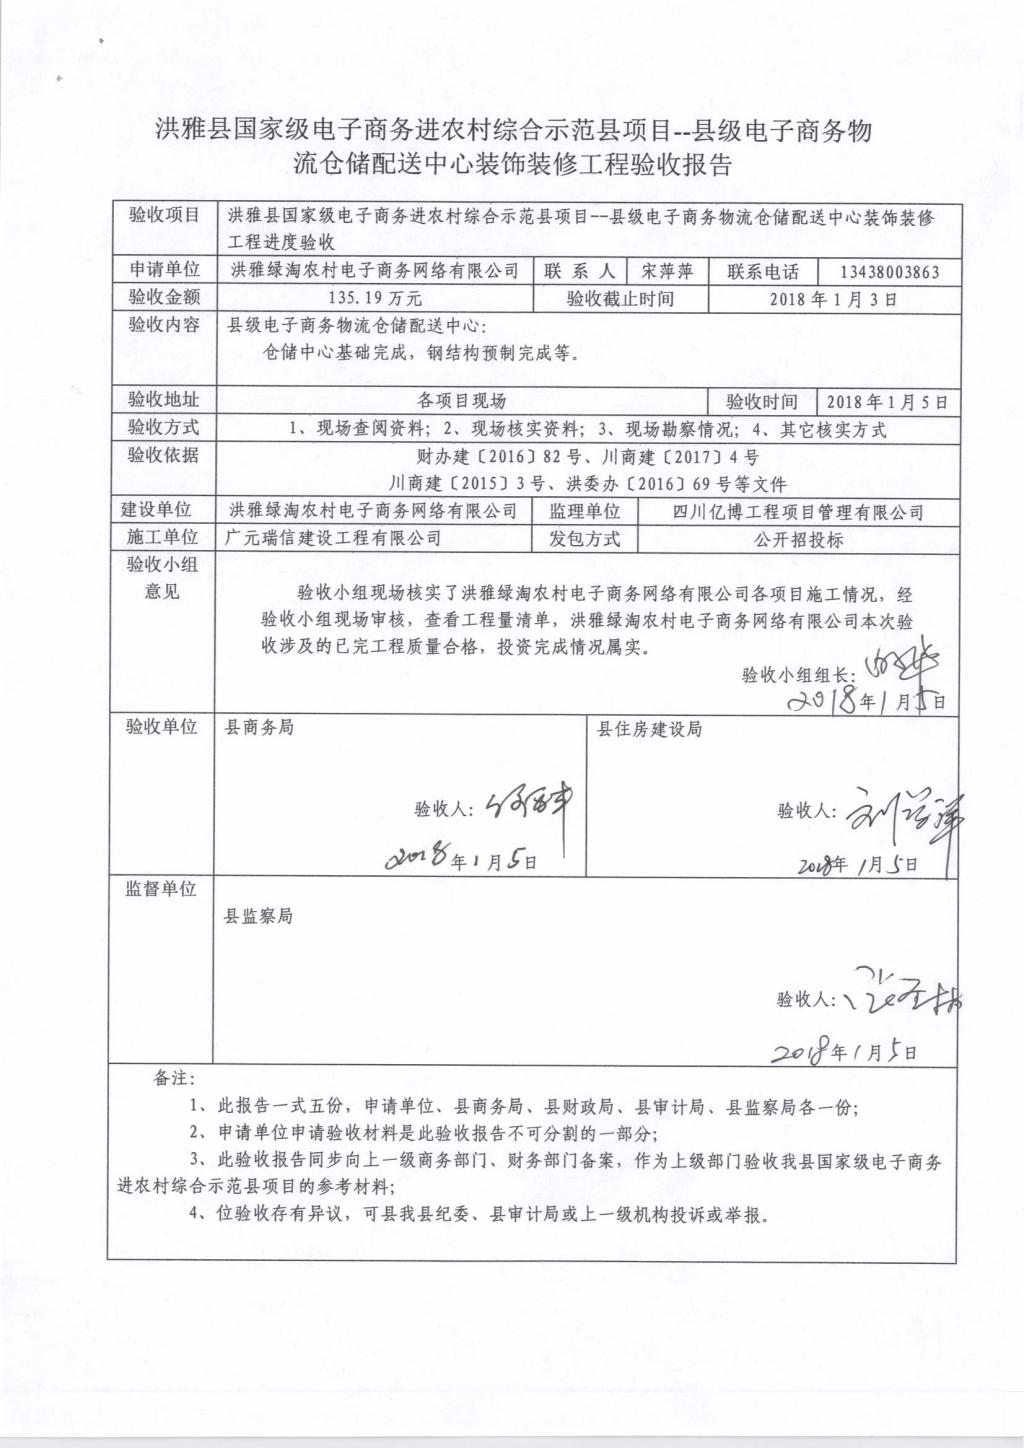 洪雅县国家级电子商务进农村综合示范县项目--县级电子商务物
流仓储配送中心装饰装修工程验收报告
验收项目
洪雅县国家级电子商务进农村综合示范县项目--县级电子商务物流仓储配送中心装饰装修
工程进度验收
申请单位 洪雅绿淘农村电子商务网络有限公司 联系人 宋萍萍 联系电话 13438003863
验收金额 135.19万元 验收截止时间 2018年1月3日
验收内容 县级电子商务物流仓储配送中心：
仓储中心基础完成，钢结构预制完成等。
验收地址 各项目现场 验收时间 2018年1月5日
验收方式 1、现场查阅资料；2、现场核实资料；3、现场勘察情况；4、其它核实方式
验收依据 财办建〔2016〕82号、川商建〔2017〕4号
川商建〔2015〕3号、洪委办〔2016〕69号等文件
建设单位 洪雅绿淘农村电子商务网络有限公司 监理单位 四川亿博工程项目管理有限公司
施工单位 广元瑞信建设工程有限公司 发包方式 公开招投标
验收小组
意见
验收小组现场核实了洪雅绿淘农村电子商务网络有限公司各项目施工情况，经
验收小组现场审核，查看工程量清单，洪雅绿淘农村电子商务网络有限公司本次验
收涉及的已完工程质量合格，投资完成情况属实。
验收小组组长：
2018年1月5日
验收单位 县商务局 县住房建设局
验收人： 验收人：
2018年1月5日 2018年1月5日
监督单位
县监察局
验收人：
2018年1月5日
备注：
1、此报告一式五份，申请单位、县商务局、县财政局、县审计局、县监察局各一份；
2、申请单位申请验收材料是此验收报告不可分割的一部分；
3、此验收报告同步向上一级商务部门、财务部门备案，作为上级部门验收我县国家级电子商务
进农村综合示范县项目的参考材料；
4、位验收存有异议，可县我县纪委、县审计局或上一级机构投诉或举报。